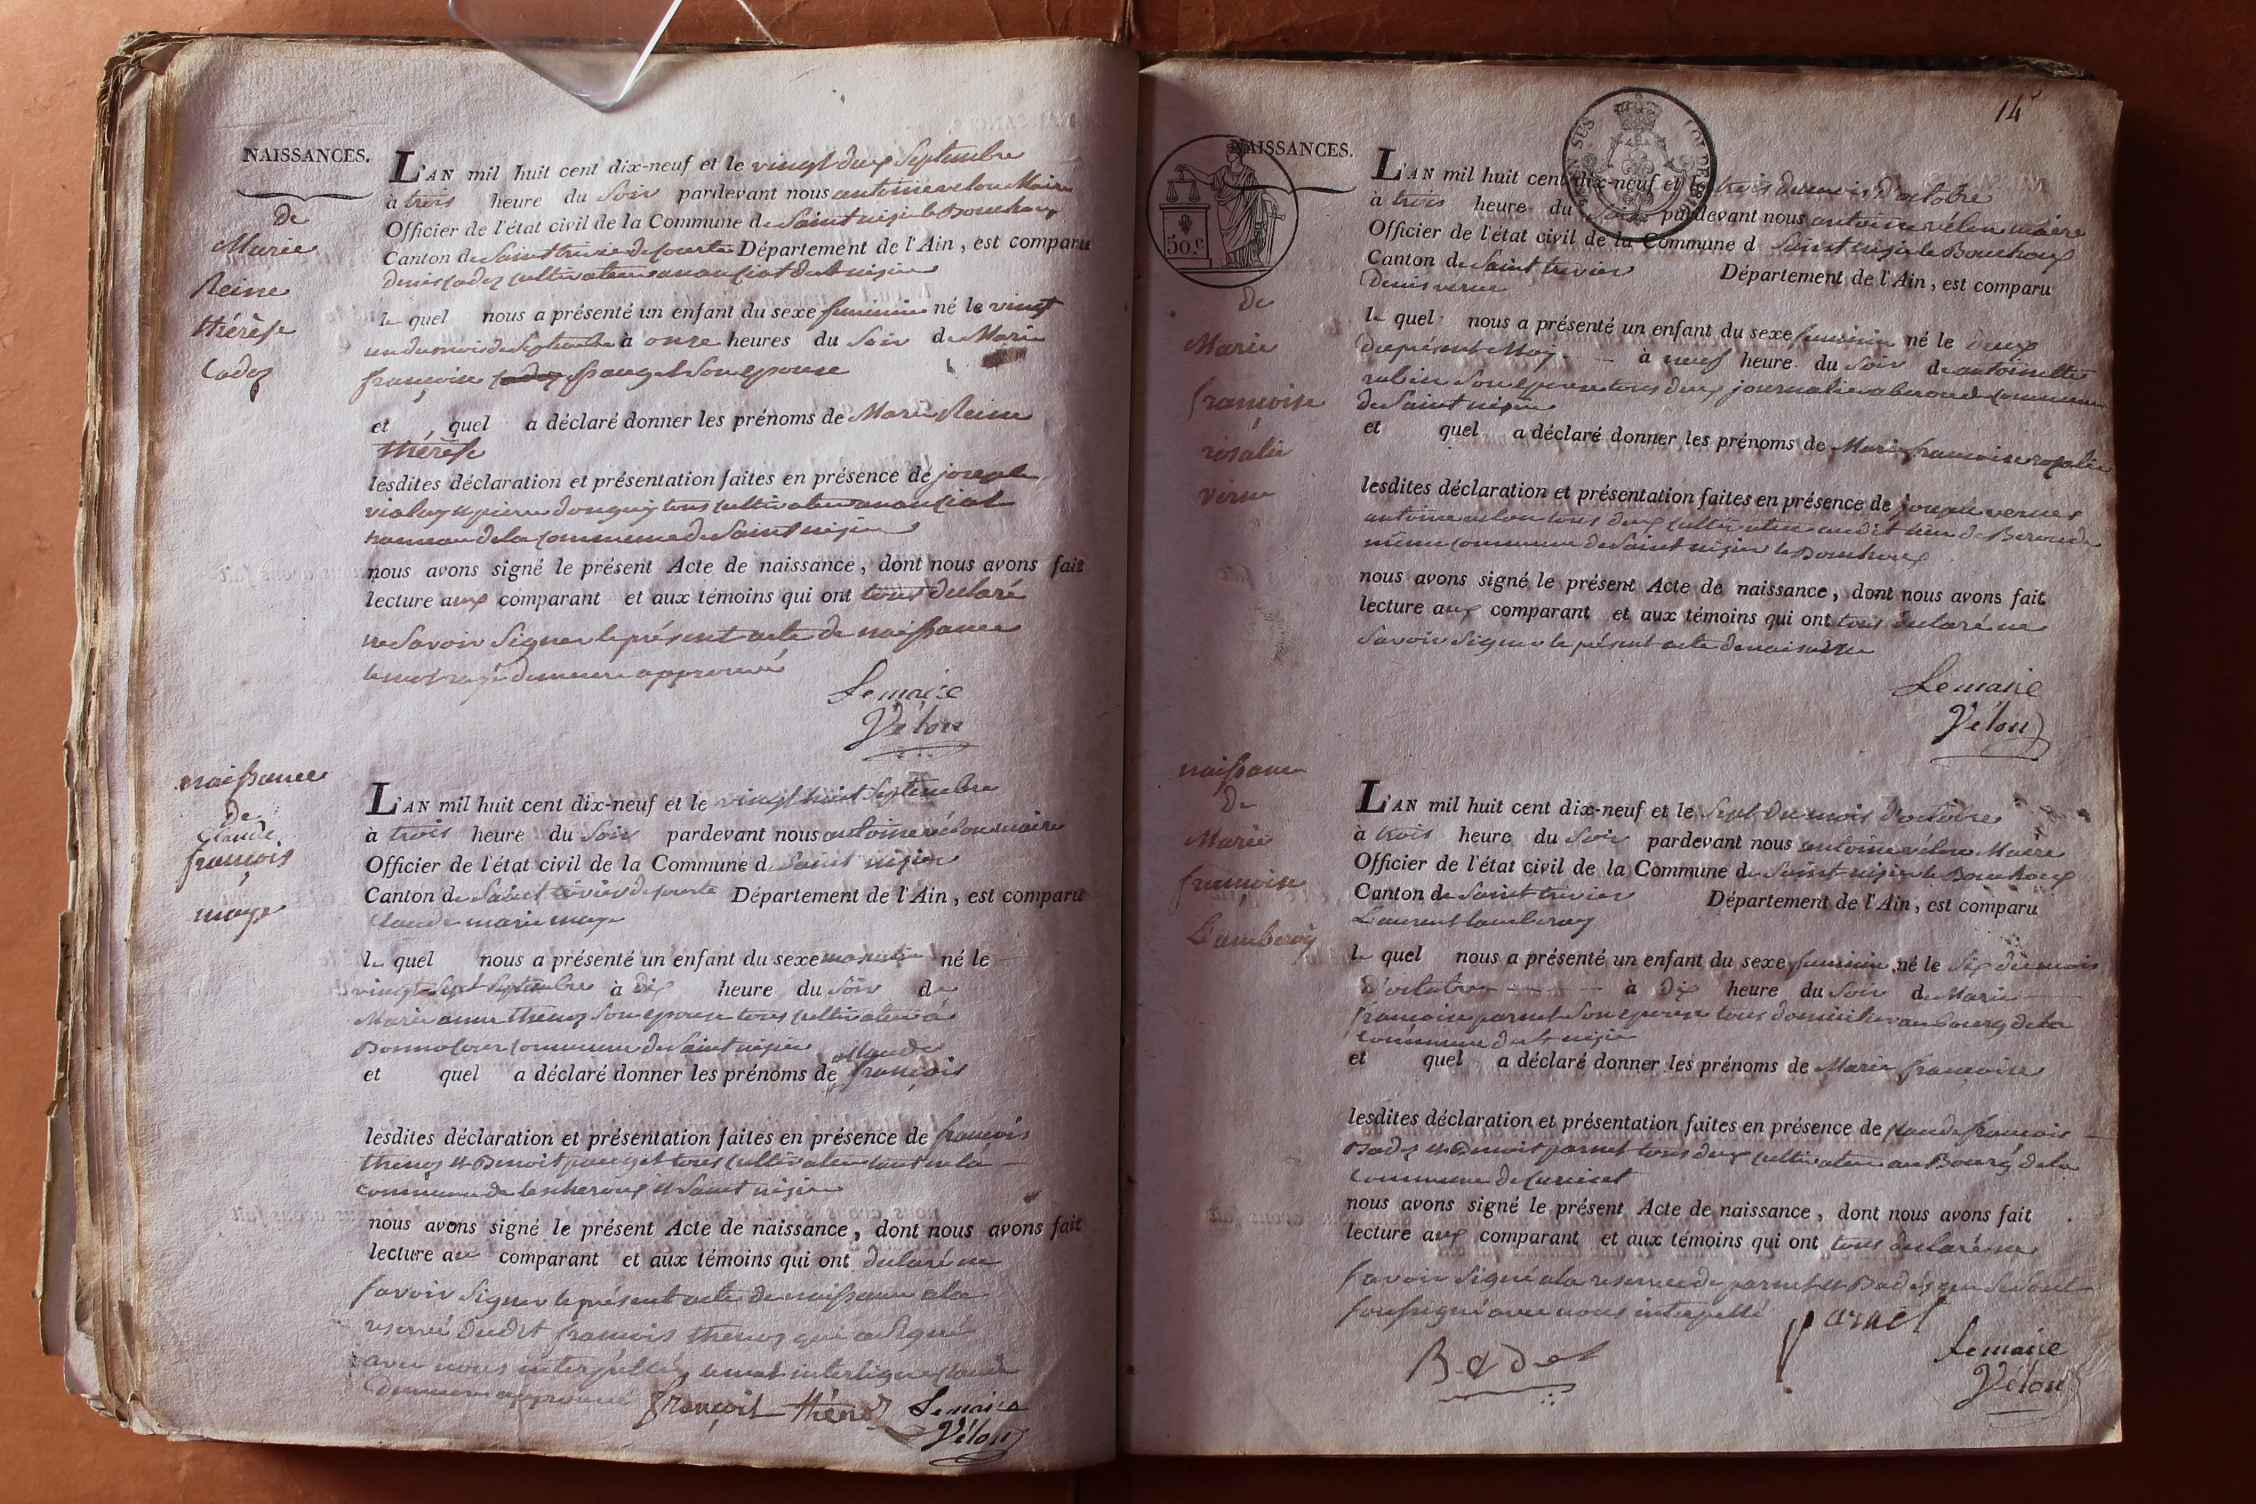 NAISSANCES.
de
Marie
Reine
thérèse
Cadez
L'AN mil huit cent dix-neuf et le vingt deux Septembre
à trois heure du Soir pardevant nous antoine velou Maire
Officier de l'état civil de la Commune de Saint nizier le Bouchoux
Canton de Saint trivier de courtes Département de l'Ain, est comparu
denis Cadez cultivateur
le quel nous a présenté un enfant du sexe feminin né le vingt
un du mois de Septembre à onze heures du Soir de Marie
françoise Son epouse
et quel a déclaré donner les prénoms de Marie Reine
thérèse
lesdites déclaration et présentation faites en présence de joseph
vialuy et pierre tous cultivateur
hameau de la commune de Saint nizier
nous avons signé le présent Acte de naissance, dont nous avons fait
lecture aux comparant et aux témoins qui ont tous declaré
ne Savoir Signer le présent acte de naissance
le mot rayé demeure approuvé
Le maire
Vélou
naissance
de
Claude
françois
moyse
L'AN mil huit cent dix-neuf et le vingt huit Septembre
à trois heure du Soir pardevant nous antoine vélou maire
Officier de l'état civil de la Commune de Saint nizier
Canton de Saint trivier de courte Département de l'Ain, est comparu
Claude marie moyse
le quel nous a présenté un enfant du sexe masculin né le
vingt Sept Septembre à dix heure du Soir de
Marie anne thenoz Son epouse tous cultivateur à
commune de Saint nizier
et quel a déclaré donner les prénoms de claude françois
lesdites déclaration et présentation faites en présence de françois
thenoz et Benoit tous cultivateur
commune de lescheroux et Saint nizier
nous avons signé le présent Acte de naissance, dont nous avons fait
lecture au comparant et aux témoins qui ont declaré ne
Savoir Signer le présent acte de naissance a la
reserve dudit françois thenoz qui a Signé
avec nous interpellé, le mot interligne claude
demeure approuvé
françoit thénoz
Le maire
Vélou
14
50.c
NAISSANCES.
de
Marie
françoise
rosalie
verne
L'AN mil huit cent dix-neuf et le trois du mois d'octobre
à trois heure du Soir pardevant nous antoine vélou maire
Officier de l'état civil de la Commune d Saint nizier le Bouchoux
Canton de Saint trivier Département de l'Ain, est comparu
Denis verne
le quel nous a présenté un enfant du sexe feminin né le deux
du présent Moy à neuf heure du Soir de antoinette
rubin Son epouse tous deux journalier commune
de Saint nizier
et quel a déclaré donner les prénoms de Marie françoise rosalie
lesdites déclaration et présentation faites en présence de joseph vernes
antoine velou tous deux cultivateur audit lieu de
même commune de Saint nizier le Bouchoux
nous avons signé le présent Acte de naissance, dont nous avons fait
lecture aux comparant et aux témoins qui ont tous declaré ne
Savoir Signer le présent acte de naissance
Le maire
Vélou
naissance
de
Marie
françoise
Lamberoy
L'AN mil huit cent dix-neuf et le Sept du mois d'octobre
à trois heure du Soir pardevant nous antoine vélou Maire
Officier de l'état civil de la Commune de Saint nizier le Bouchoux
Canton de Saint trivier Département de l'Ain, est comparu
Laurent lamberoy
le quel nous a présenté un enfant du sexe feminin né le Six du mois
d'octobre à dix heure du Soir de Marie
françoise parnet Son epouse tous domicilier au bourg de la
commune de St nizier
et quel a déclaré donner les prénoms de Marie françoise
lesdites déclaration et présentation faites en présence de claude françois
Badez et Benoit parnet tous deux cultivateur au Bourg de la
commune de
nous avons signé le présent Acte de naissance, dont nous avons fait
lecture aux comparant et aux témoins qui ont tous declaré ne
Savoir Signé a la reserve de parnet et Badez qui Se Sont
Soussigné avec nous interpellé
parnet
Badet
Le maire
Vélou